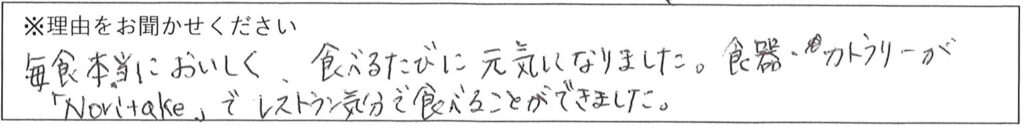 ※理由をお聞かせください
毎食本当においしく、食べるたびに元気になりました。食器・カトラリーが
「Noritake」でレストラン気分で食べることができました。